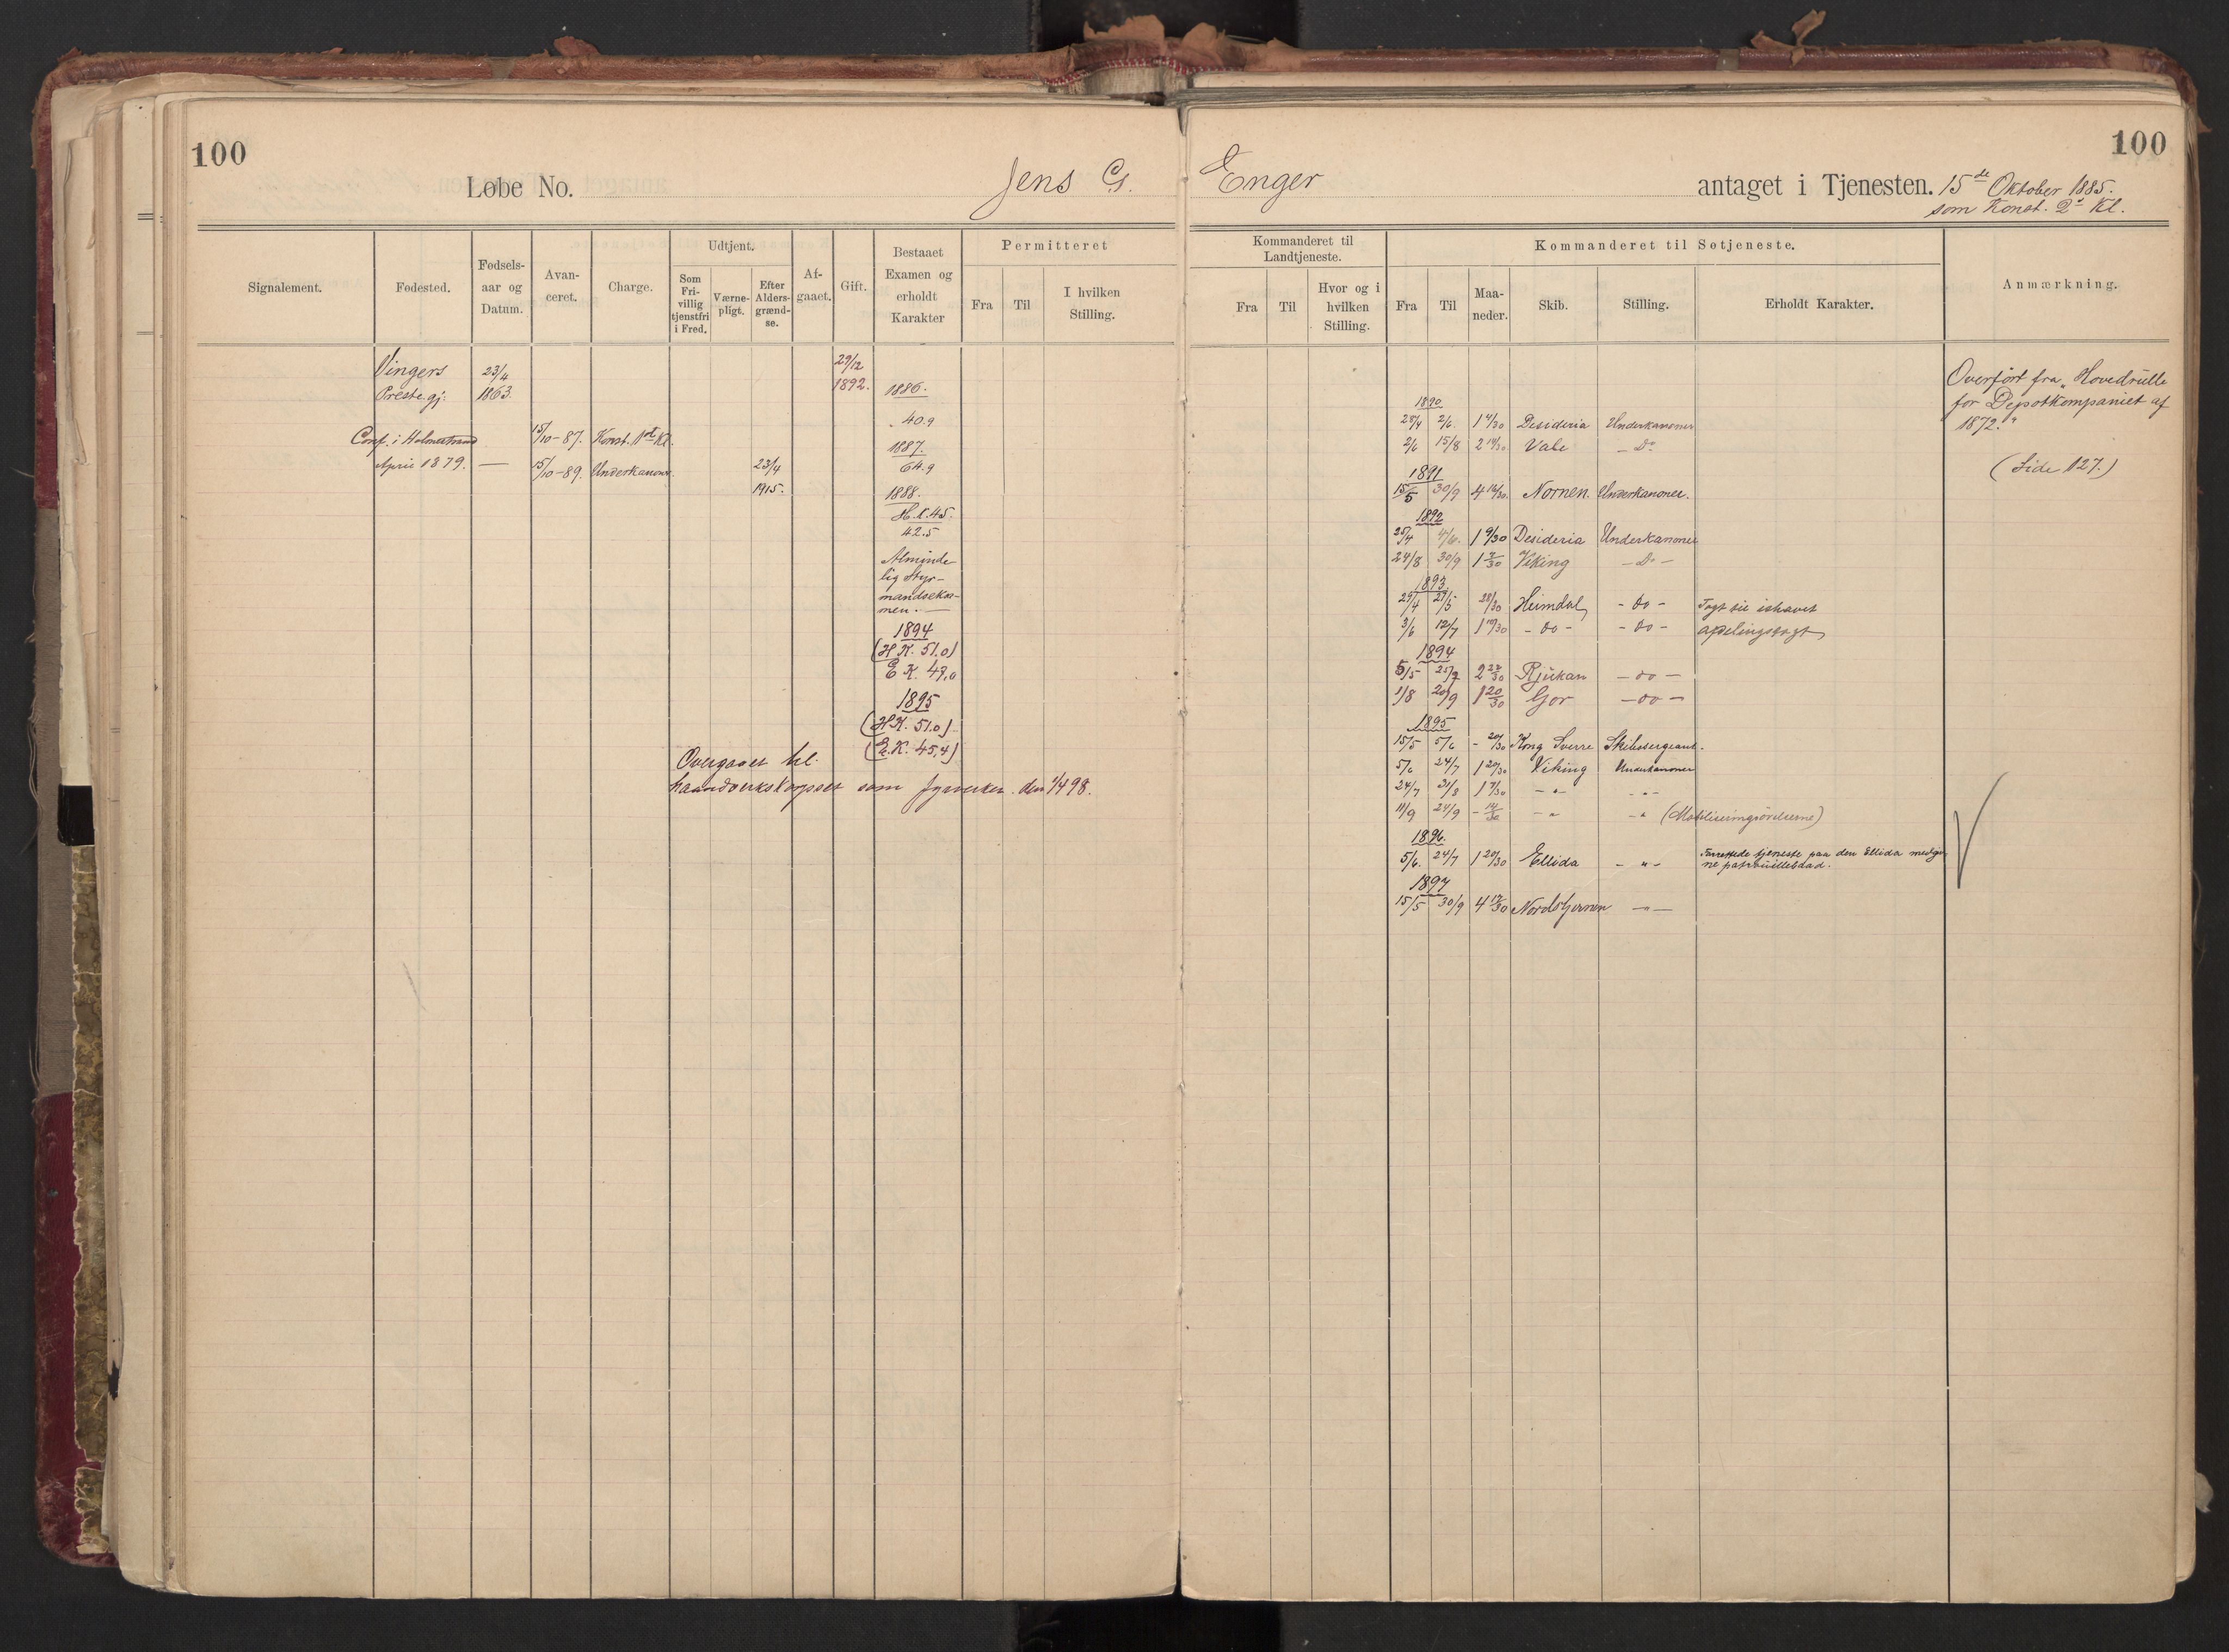 100
Løbe No. Jens G.
Signalement.
Fødested.
Fødsels-
aar og
Datum.
Avan-
ceret.
Charge.
Udtjent.
Som
Fri-
villig
tjenstfri
i Fred.
Værne-
pligt.
Efter
Alders-
grænd-
se.
Af-
gaaet.
Gift.
Bestaaet
Examen og
erholdt
Karakter
Permitteret
Fra
Til
I hvilken
Stilling.
Vingers
Prestegj:
23/4
1863.
Conf. i Holmestrand
April 1879. —
15/10-87. Konst. 1st Kl.
15/10-89. Underkanoner.
23/4
1915.
29/12
1892.
1886.
40.9
1887.
64.9
1888.
42.5
Alminde-
lig Styr-
mandseksa-
men. —
1894
(H K. 51.0)
E K. 49.0
1895
(H K. 51.0)
(E. K. 45,4)
Overgaaet til
haandverkskorpset som fyrverker den 1/4 98.
100
Enger antaget i Tjenesten. 15de Oktober 1885.
som Konst. 2d Kl.
Kommanderet til
Landtjeneste.
Fra
Til
Hvor og i
hvilken
Stilling.
Kommanderet til Søtjeneste.
Fra
Til
Maa-
neder.
Skib.
Stilling.
Erholdt Karakter.
Anmærkning.
1890
28/4 2/6. Desideria Underkanoner
2/6 15/8 2 14/30 Vale — Do
1891
15/5 30/9 4 16/30. Nornen. Underkanoner.
1892
25/4 1 9/30 Desideria Underkanoner
24/8 30/9 1 7/30 Viking — Do —
1893
29/4 27/5 28/30 Heimdal - do - Togt til ishavet
3/6 12/7 1 10/30 - do - - do - afdelingstogt
1894
5/5 2 22/30 Rjukan — do —
1/8 20/9 1 20/30 Gor — do —
1895
15/5 5/6 - 20/30 Kong Sverre Skibssergeant.
5/6 24/7 1 20/30 Viking Underkanoner
24/7 31/8 1 7/30 — " — - " -
11/9 24/9 - 14/30 — " — " (Mobiliseringsøvelserne)
1896.
5/6. 24/7 1 20/30 Ellida — " — Forrettede tjeneste paa den Ellida medgiv-
ne patrouillebaad.
1897
15/5 30/9 4 15/30 Nordstjernen — " —
Overført fra „Hovedrulle
for Depotkompaniet af
1872."
(Side 127.)